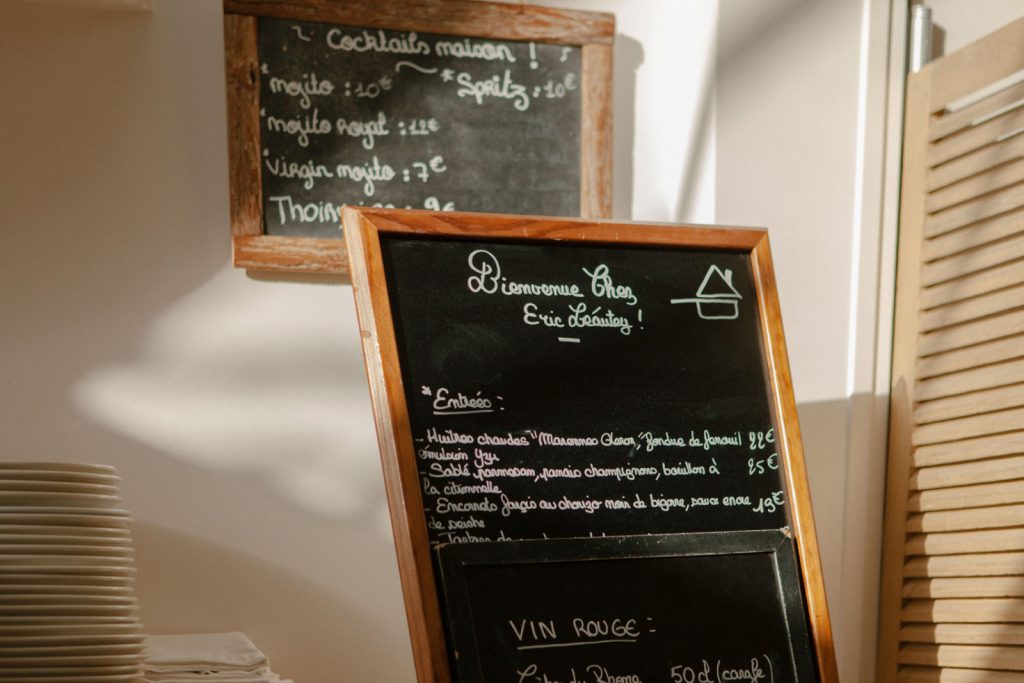 Cocktails maison !
* mojito : 10€ * Spritz : 10€
* mojito Royal : 12€
* Virgin mojito : 7€
9€
Bienvenue Chez
Eric Léautey !
* Entreés :
- Huitres chaudes "Marennes Oleron", fondue de fenouil 22€
émulsion Yzu
- Sablé parmesan, panais champignons, bouillon à 25€
la citronnelle
- Encornets farçis au chorizo noir de bigorre, sauce encre 19€
de seiche
- Tartare de
VIN ROUGE :
Côtes du Rhone 50cl (carafe)